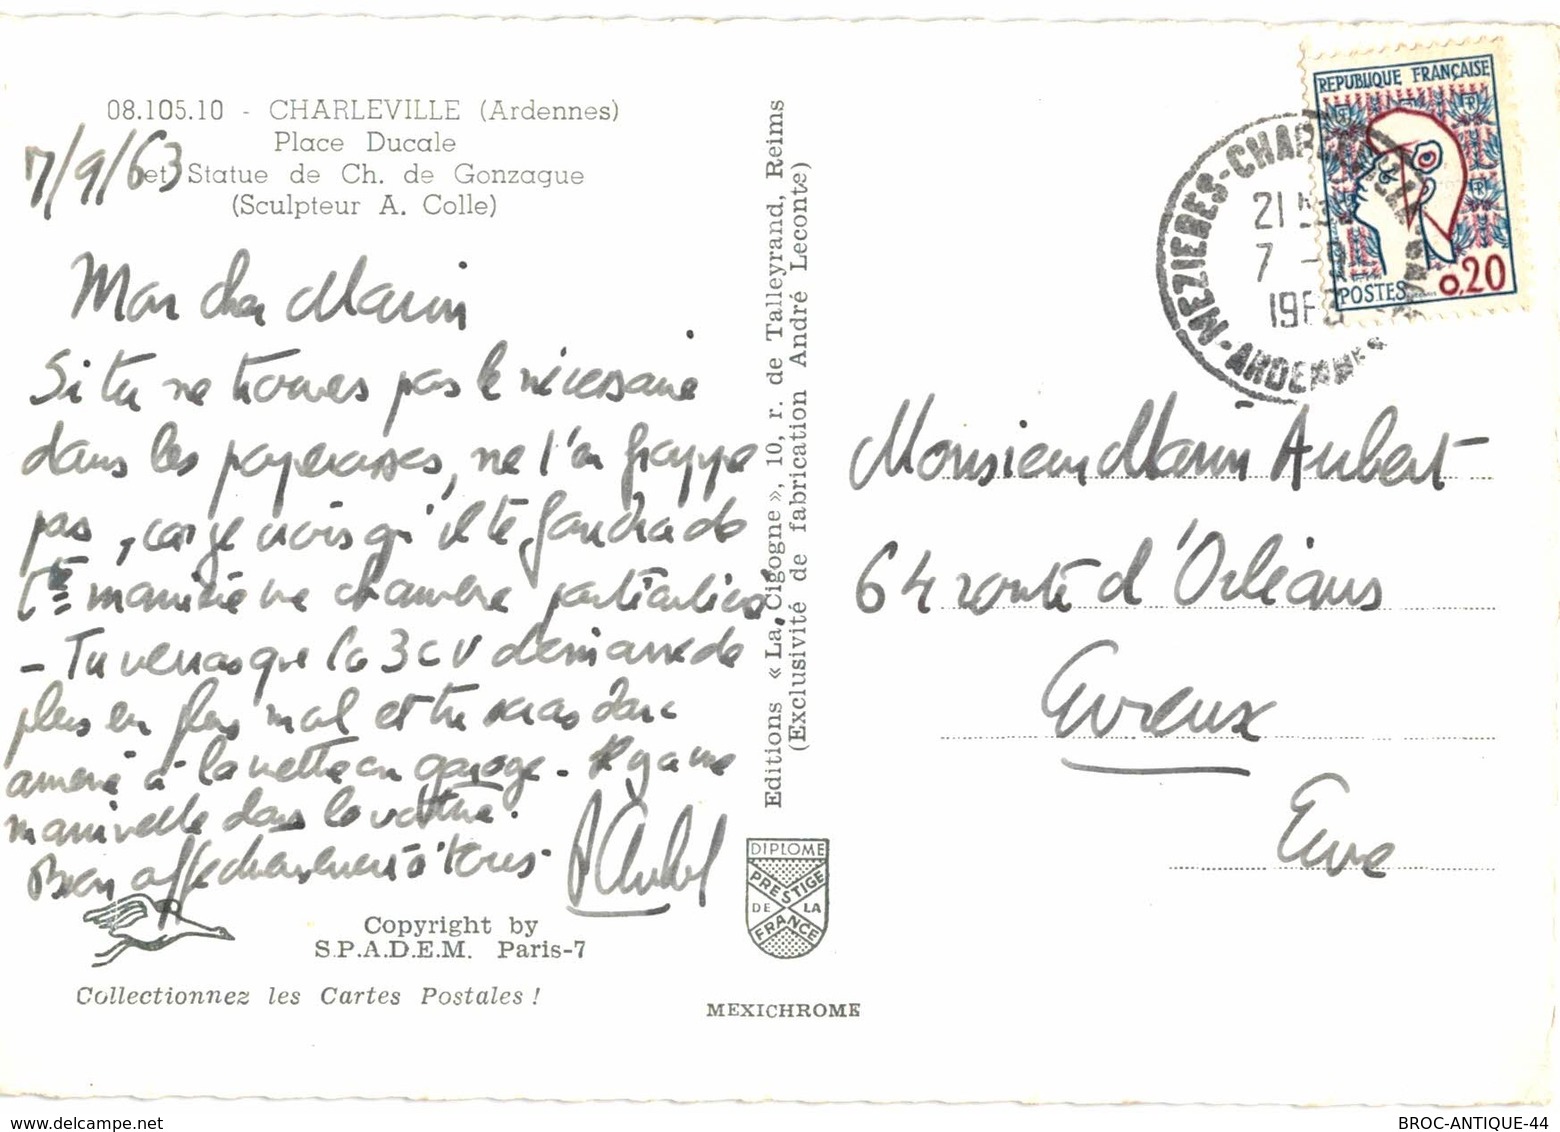 08.105.10 - CHARLEVILLE (Ardennes)
Place Ducale
et Statue de Ch. de Gonzague
(Sculpteur A. Colle)
7/9/63
Mon cher Marin
Si tu ne trouves pas le nécessaire
dans les paperasses, ne t'en frappe
pas, car je crois qu'il te faudra de
tte manière une chambre particulière
- Tu verras que la 3cv démarre de
plus en plus mal et tu seras donc
amené à la mettre en garage. Il y a une
manivelle dans la voiture.
Bien affectueusement à tous.
Aubert
Copyright by
S.P.A.D.E.M. Paris-7
Collectionnez les Cartes Postales !
Editions « La Cigogne », 10, r. de Talleyrand, Reims
(Exclusivité de fabrication André Leconte)
DIPLOME
PRESTIGE
DE LA
FRANCE
MEXICHROME
REPUBLIQUE FRANÇAISE
POSTES 0,20
MEZIERES-CHARLEVILLE
21
7 - 9
1963
ARDENNES
Monsieur Marin Aubert
64 route d'Orléans
Evreux
Eure
BROC-ANTIQUE-44